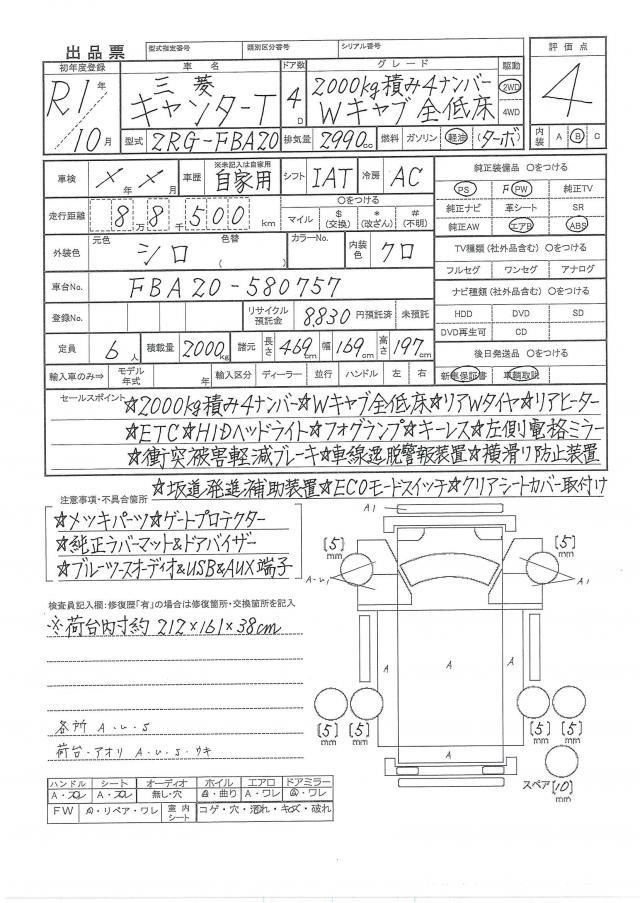 出品票 型式指定番号 類別区分番号 シリアル番号 評価点
初年度登録 車名 ドア数 グレード 駆動
R1年 三菱 2000kg積み4ナンバー 2WD 4
キャンターT 4D Wキャブ全低床 4WD
10月 型式 2RG-FBA20 排気量 2990cc 燃料 ガソリン 軽油 (ターボ) 内装 A B C
車検 ×年×月 車歴 ※未記入は自家用 自家用 シフト IAT 冷房 AC
走行距離 8 8万 千 500 km ○をつける マイル $(交換) *(改ざん) #(不明)
外装色 元色 シロ 色替 ( ) カラーNo. 内装色 クロ
車台No. FBA20-580757
登録No. リサイクル預託金 8,830 円預託済 未預託
定員 6人 積載量 2000kg 諸元 長さ 469cm 幅 169 高さ 197cm
輸入車のみ⇒ モデル年式 年 輸入区分 ディーラー 並行 ハンドル 左 右
純正装備品 ○をつける
PS PW 純正TV
純正ナビ 革シート SR
純正AW エアB ABS
TV種類(社外品含む) ○をつける
フルセグ ワンセグ アナログ
ナビ種類(社外品含む) ○をつける
HDD DVD SD
DVD再生可 CD
後日発送品 ○をつける
新車保証書 車輌取説
セールスポイント ☆2000kg積み4ナンバー☆Wキャブ全低床☆リアWタイヤ☆リアヒーター
☆ETC☆HIDヘッドライト☆フォグランプ☆キーレス☆左側電格ミラー
☆衝突被害軽減ブレーキ☆車線逸脱警報装置☆横滑り防止装置
☆坂道発進補助装置☆ECOモードスイッチ☆クリアシートカバー取付け
注意事項・不具合箇所
☆メッキパーツ☆ゲートプロテクター
☆純正ラバーマット&ドアバイザー
☆ブルーツースオーディオ&USB&AUX端子
検査員記入欄:修復歴「有」の場合は修復箇所・交換箇所を記入
※荷台内寸約 212×161×38cm
各所 A・U・S
荷台・アオリ A・U・S・サキ
ハンドル シート オーディオ ホイル エアロ ドアミラー
A・スレ A・スレ 無し・穴 A・曲り A・ワレ A・ワレ
FW A・リペア・ワレ 室内シート コゲ・穴・汚れ・キズ・破れ
A1
[5]mm [5]mm
A・U1 A1
A A A
[5]mm [5]mm [5]mm [5]mm
A
スペア [10]mm